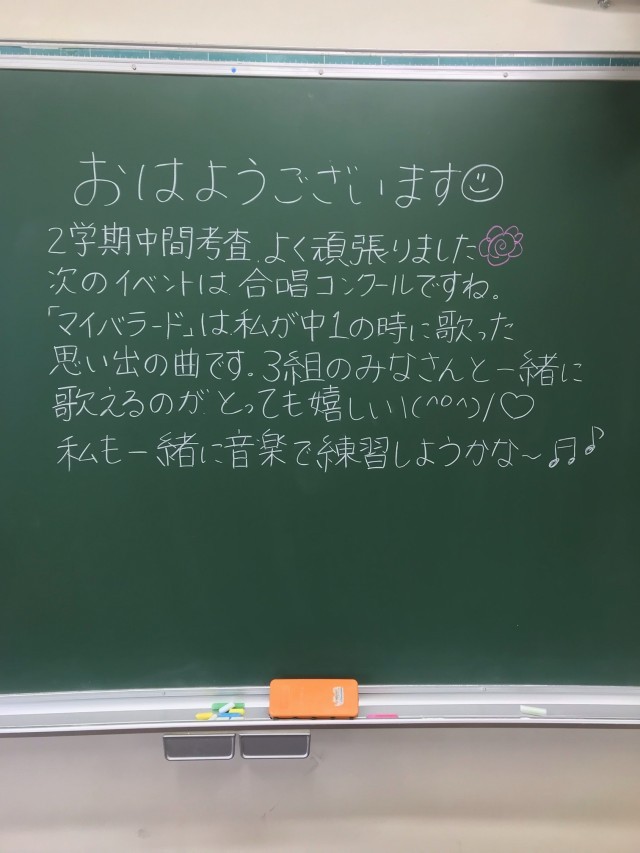 おはようございます
2学期中間考査、よく頑張りました
次のイベントは合唱コンクールですね。
「マイバラード」は私が中1の時に歌った
思い出の曲です。3組のみなさんと一緒に
歌えるのが、とっても嬉しい\(^o^)/♡
私も一緒に音楽で練習しようかな〜♫♪